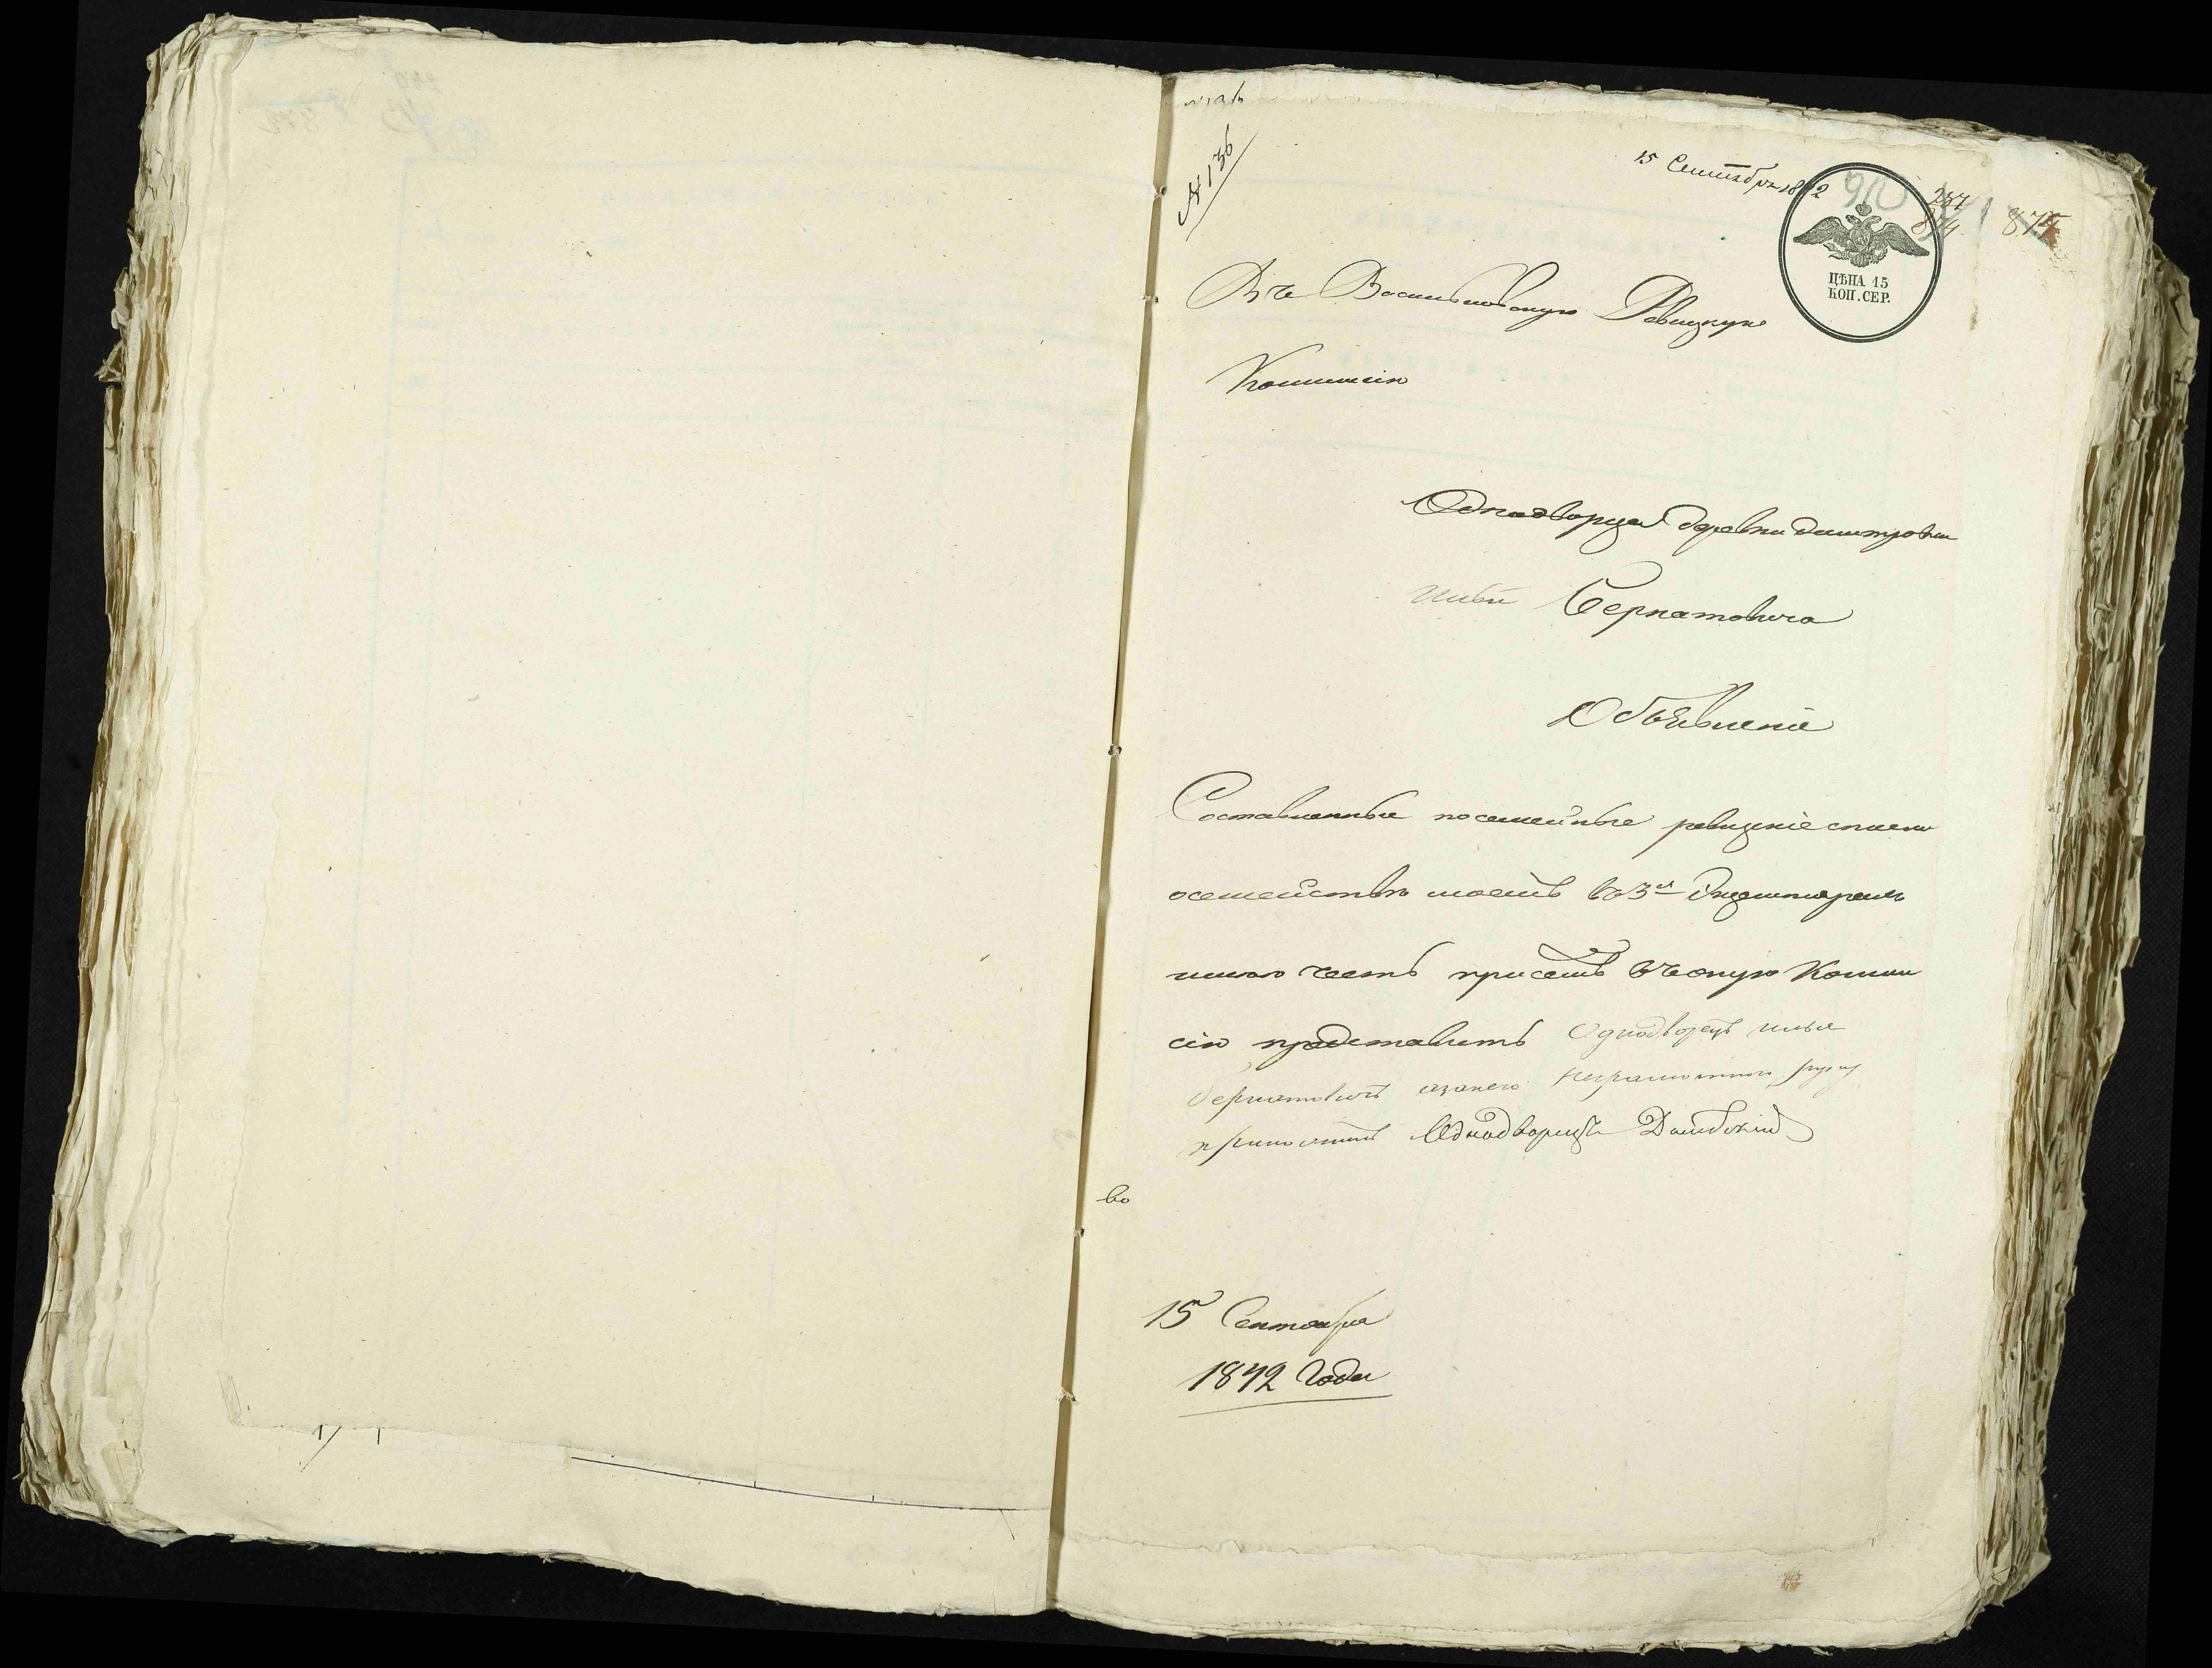 № 136
15 Сентября 1842
910
231
874
874
ЦѢНА 15
КОП. СЕР.
Въ Васильковскую Ревизкую
Комиссію
Однодворца деревни Дмитровки
Ильи Бернатовича
Объявленіе
Составленные посемейные ревизкіе списки
осемействѣ моемъ въ 3х Экземплярахъ
имею честь присемъ въ оную Комми
сію представить Однодворецъ илья
бернатовичъ азанего неграмотного руку
приложилъ Однодворецъ Домбскій
во
15 Сентября
1842 Года